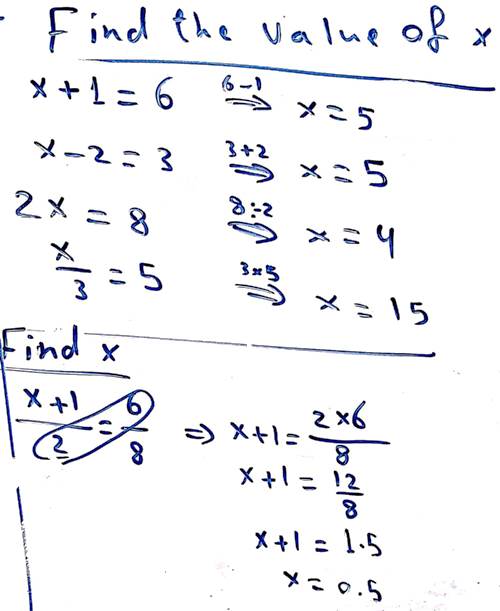 Find the value of x
x + 1 = 6 6-1 ⇒ x = 5
x - 2 = 3 3+2 ⇒ x = 5
2x = 8 8÷2 ⇒ x = 4
x/3 = 5 3×5 ⇒ x = 15
Find x
(x+1)/2 = 6/8 ⇒ x+1 = (2×6)/8
x+1 = 12/8
x+1 = 1.5
x = 0.5